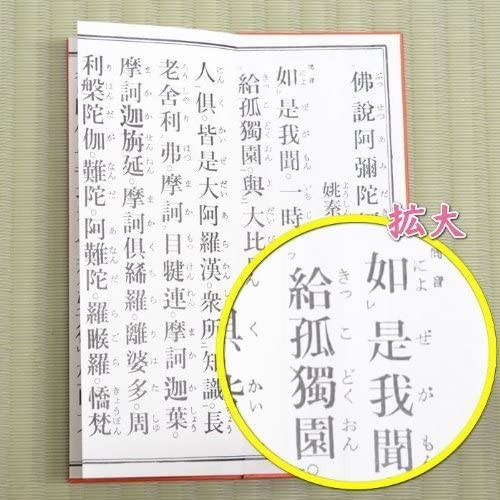 佛說阿彌陀
姚秦
如是我聞。一時
給孤獨園。與大比
人俱。皆是大阿羅漢。衆所知識。長
老舍利弗。摩訶目犍連。摩訶迦葉。
摩訶迦旃延。摩訶俱絺羅。離婆多。周
利槃陀伽。難陀。阿難陀。羅睺羅。憍梵
拡大
如是我聞
によぜがも
給孤獨園。
きつこどくおん
くかい